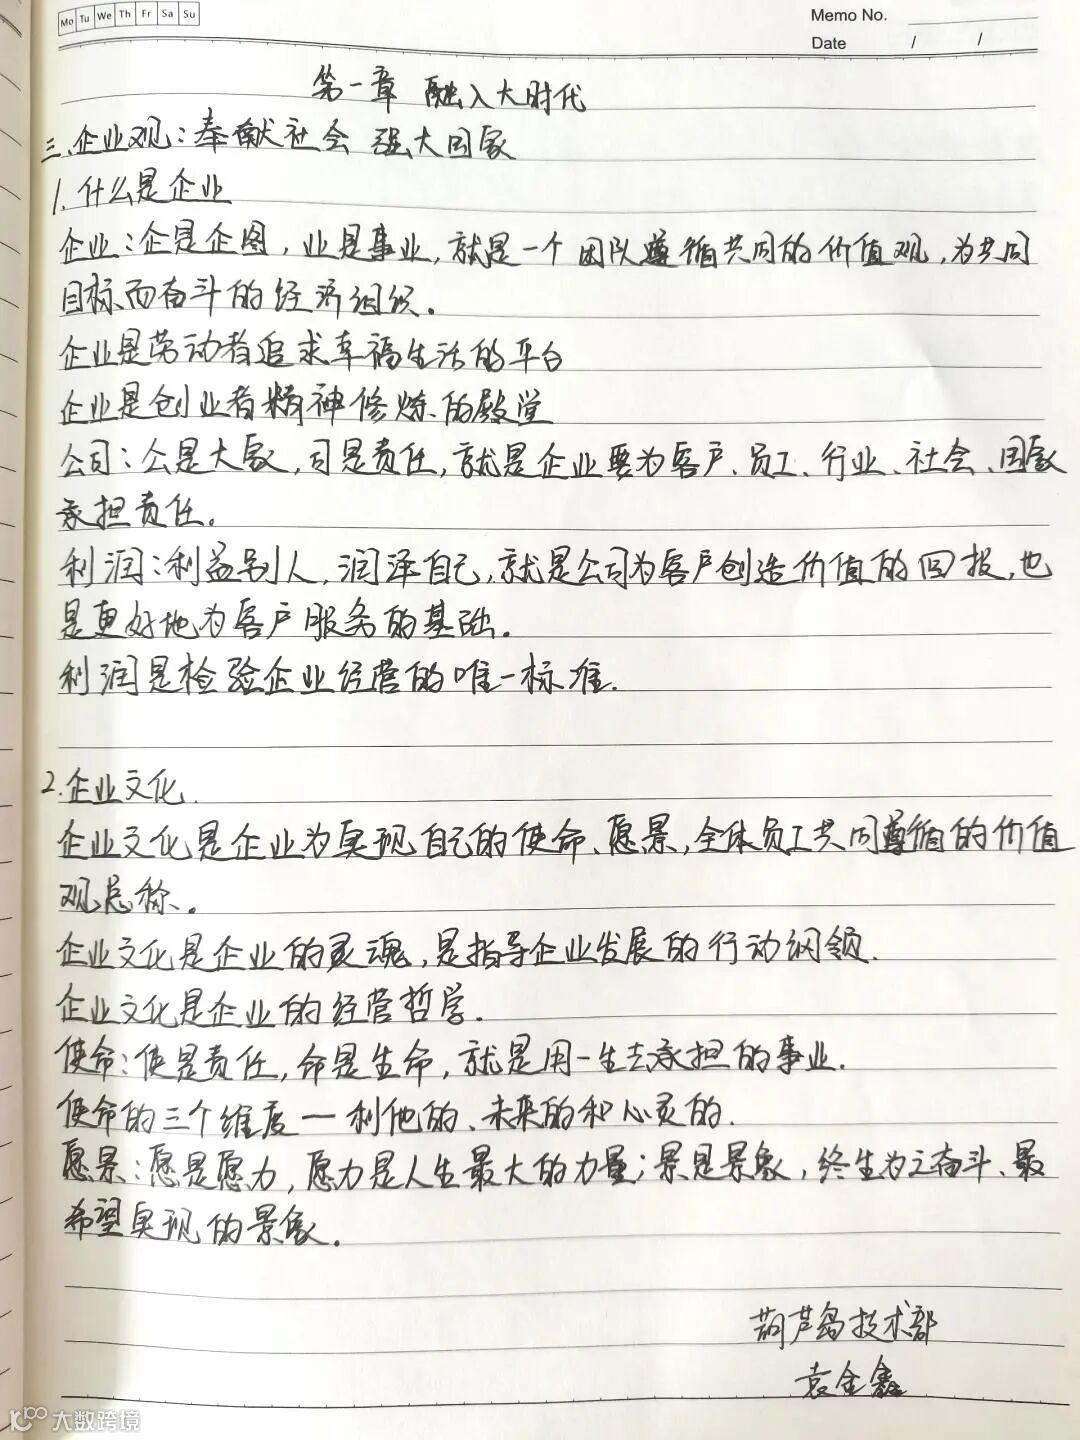 Mo Tu We Th Fr Sa Su
Memo No.
Date / /
第一章 融入大时代
三、企业观：奉献社会 强大国家
1. 什么是企业
企业：企是企图，业是事业，就是一个团队遵循共同的价值观，为共同
目标而奋斗的经济组织。
企业是劳动者追求幸福生活的平台
企业是创业者精神修炼的殿堂
公司：公是大家，司是责任，就是企业要为客户、员工、行业、社会、国家
承担责任。
利润：利益别人，润泽自己，就是公司为客户创造价值的回报，也
是更好地为客户服务的基础。
利润是检验企业经营的唯一标准.
2.企业文化.
企业文化是企业为实现自己的使命、愿景，全体员工共同遵循的价值
观总称。
企业文化是企业的灵魂，是指导企业发展的行动纲领.
企业文化是企业的经营哲学.
使命：使是责任，命是生命，就是用一生去承担的事业.
使命的三个维度一利他的、未来的和心灵的.
愿景：愿是愿力，愿力是人生最大的力量；景是景象，终生为之奋斗、最
希望实现的景象。
葫芦岛技术部
袁金鑫
大数跨境